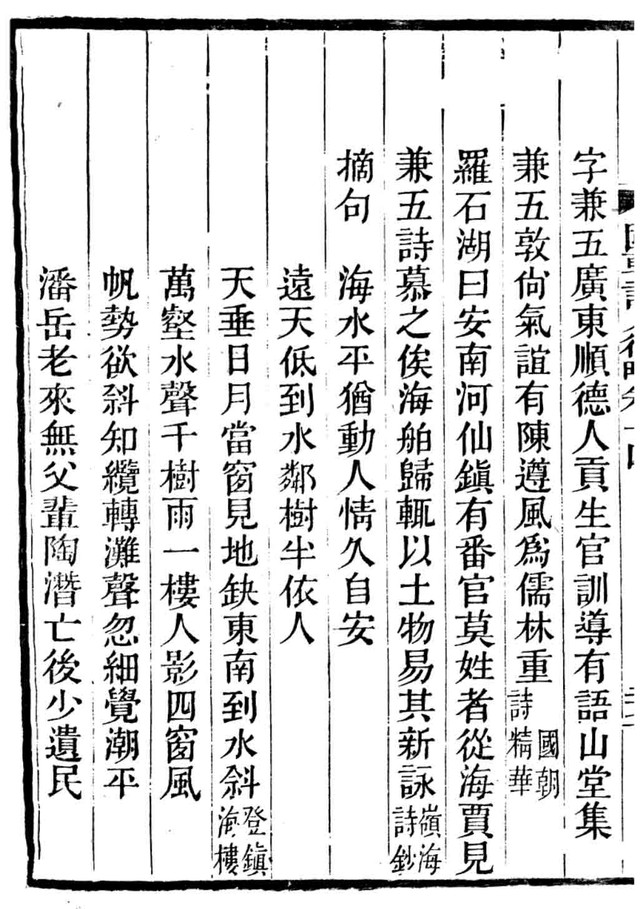 字兼五廣東順德人貢生官訓導有語山堂集
兼五敦尙氣誼有陳遵風爲儒林重國朝詩精華
羅石湖曰安南河仙鎭有番官莫姓者從海賈見
兼五詩慕之俟海舶歸輒以土物易其新詠嶺海詩鈔
摘句　海水平猶動人情久自安
遠天低到水鄰樹半依人
天垂日月當窗見地缺東南到水斜登鎭海樓
萬壑水聲千樹雨一樓人影四窗風
帆勢欲斜知纜轉灘聲忽細覺潮平
潘岳老來無父輩陶潛亡後少遺民